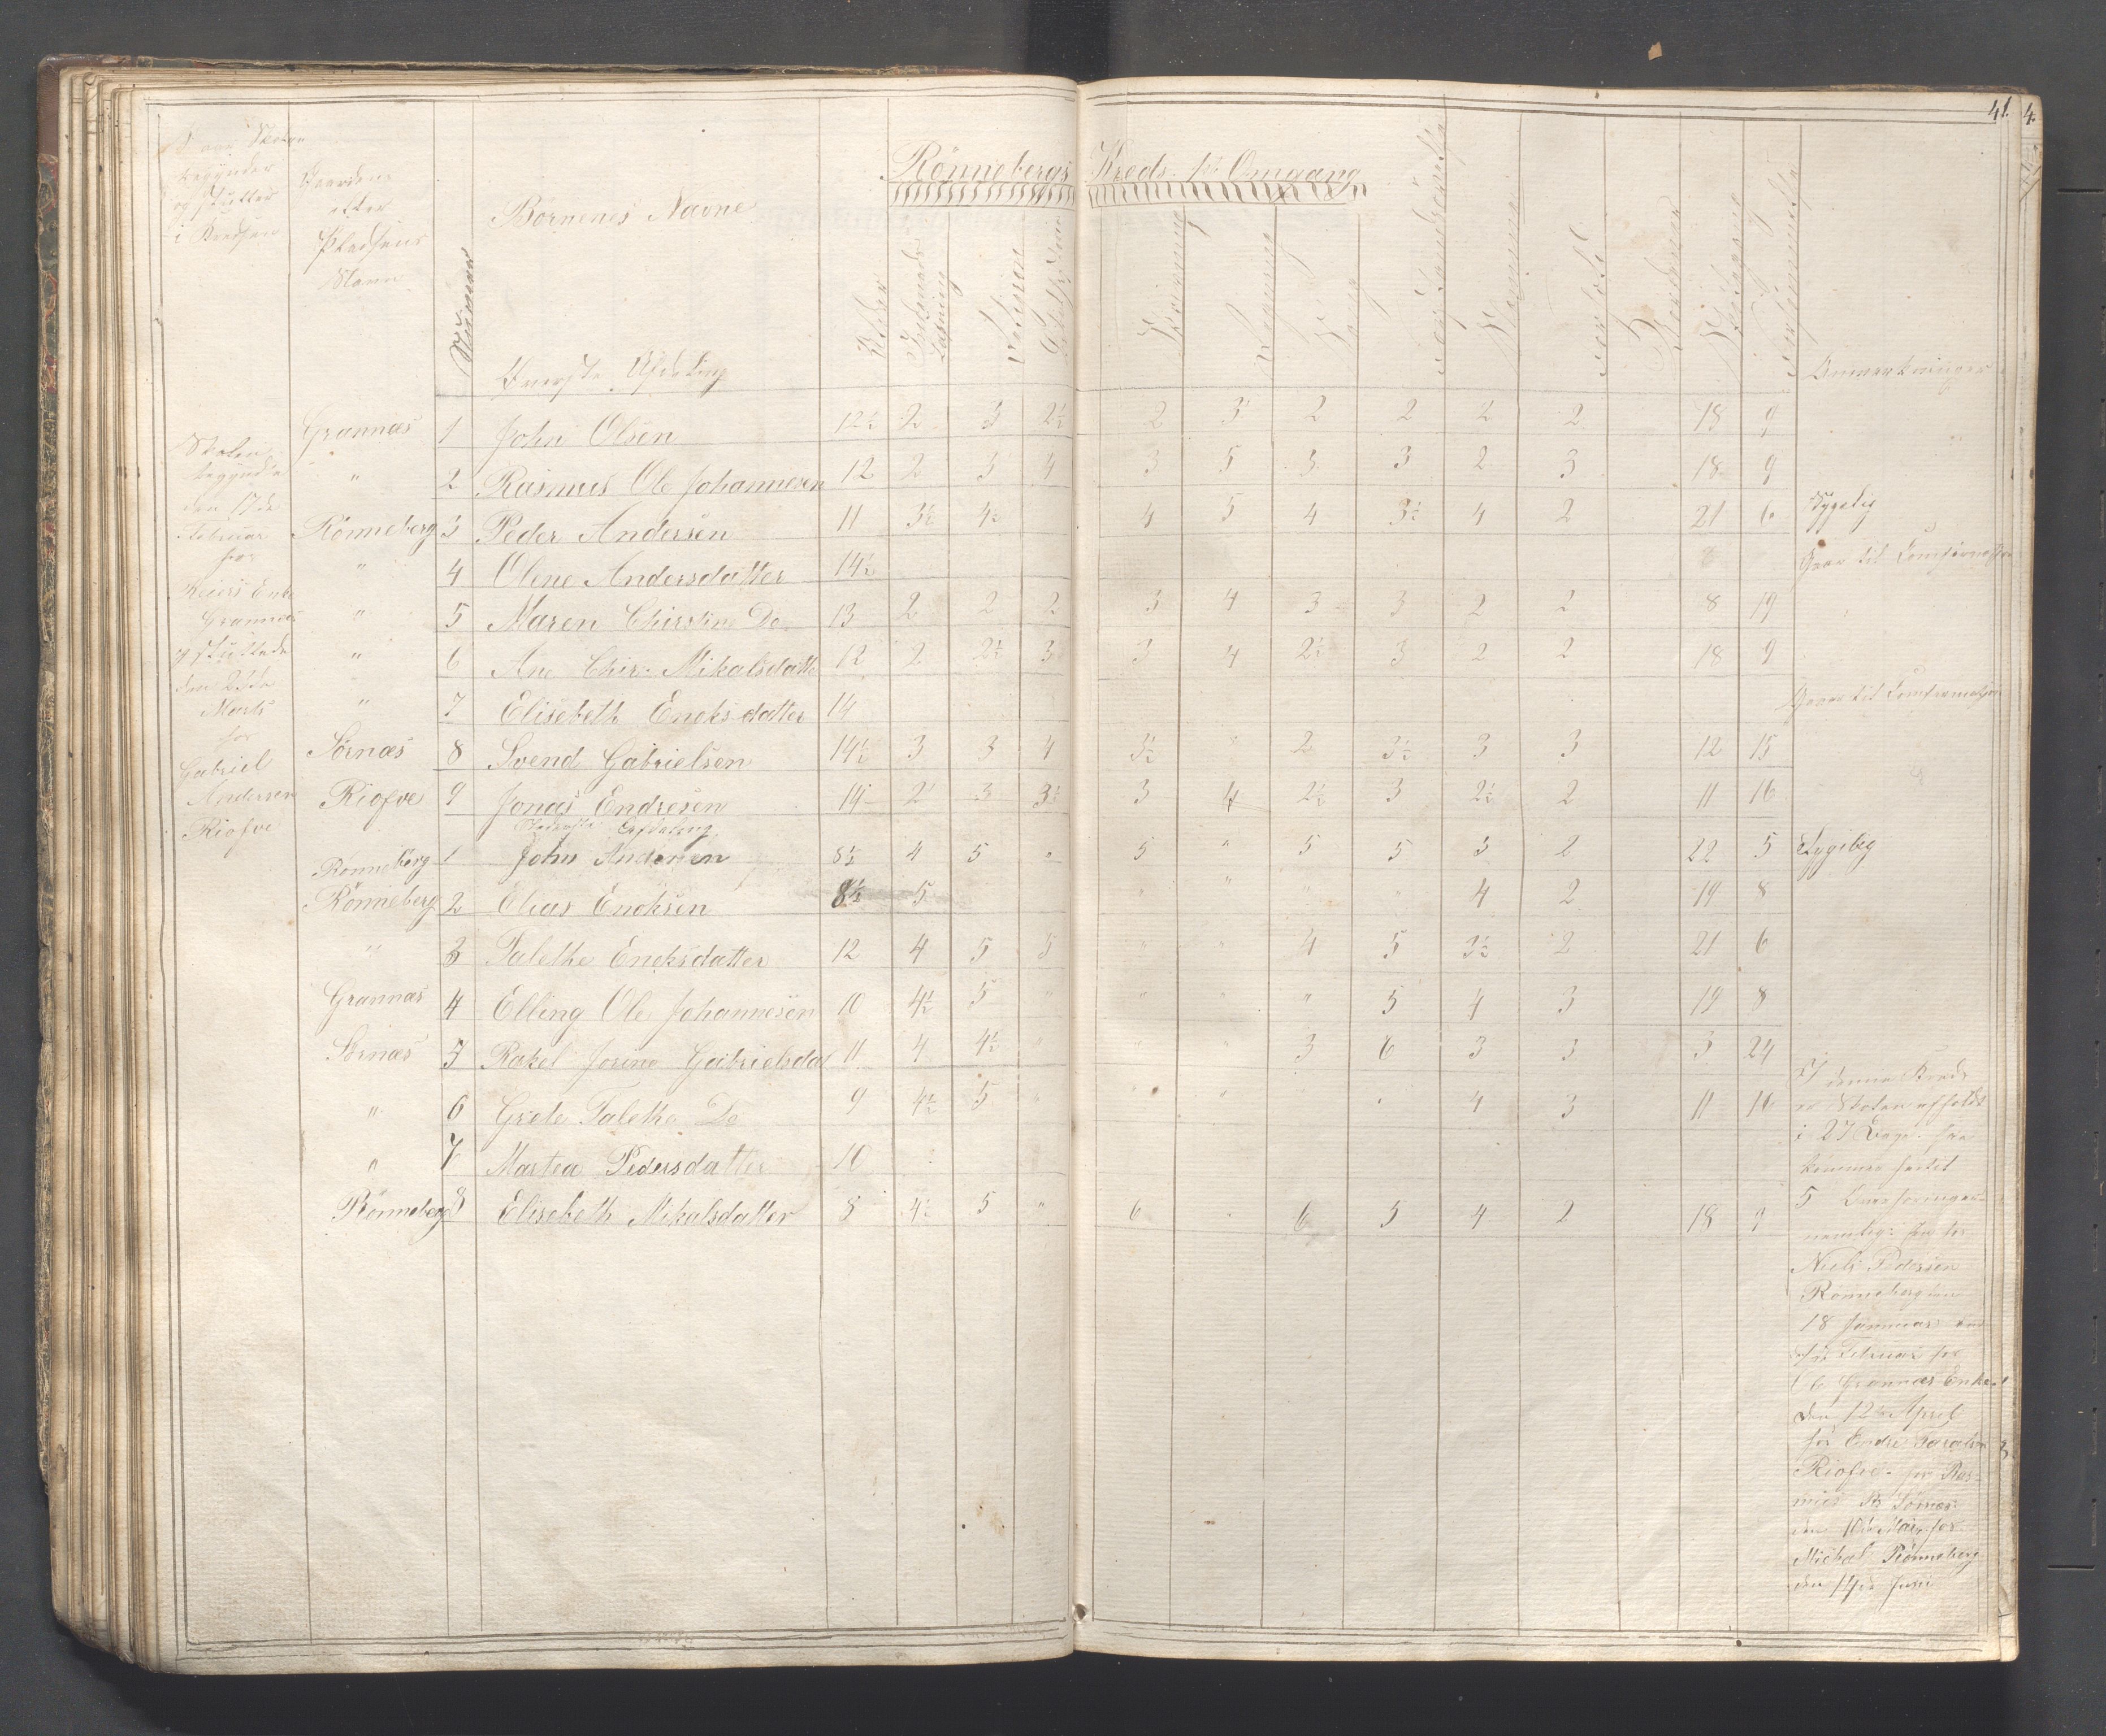 41.
4.
Rönnebergs Kreds 1ste Omgang
Naar Skolen
begynder
og slutter
i Kredsen
Gaardens
eller
Pladsens
Navn
Nummer
Börnenes Navne
Alder
Indenads Læsning
Religion
Skrivning
Regning
Sang
Anmærkninger
Øverste Afdeling
Grannæs 1 John Olsen 12½ 2 3 2½ 2 3 2 2 2 2 18 9
" 2 Rasmus Ole Johannesen 12 2 3 4 3 5 3 3 2 3 18 9
Rönneberg 3 Peder Andersen 11 3½ 4½ 4 5 4 3½ 4 2 21 6 Sygelig
" 4 Olene Andersdatter 14½ Gaar til Comfirmation
" 5 Maren Chirstin Do 13 2 2 2 3 4 3 3 2 2 8 19
" 6 Ane Chir: Mikalsdatte 12 2 2½ 3 3 4 2½ 3 2 2 18 9
" 7 Elisebeth Enoksdatter 14 Gaar til Comfirmation
Sörnæs 8 Svend Gabrielsen 14½ 3 3 4 3½ " 2 3½ 3 3 12 15
Riofve 9 Jonas Endresen 14 2 3 3½ 3 4 2½ 3 2½ 2 11 16
Nederste Afdeling
Rönneberg 1 John Andersen 8½ 4 5 " 5 " 5 5 3 2 22 5 Sygelig
Rönneberg 2 Elias Enoksen 8½ 5 " " " " 4 2 19 8
" 3 Talethe Enoksdatter 12 4 5 5 " " 4 5 3½ 2 21 6
Grannæs 4 Elling Ole Johannesen 10 4½ 5 " " " " 5 4 3 19 8
Sörnæs 5 Rakel Josine Gabrielsdat 11 4 4½ " " " 3 6 3 3 3 24
" 6 Grete Taletha Do 9 4½ 5 " " " 4 3 11 16
" 7 Martea Pedersdatter 10
Rönneberg 8 Elisebeth Mikalsdatter 8 4½ 5 " 6 " 6 5 4 2 18 9
Skolen
begyndte
den 17de
Februar
hos
Reiers Enke
Grannæs
og sluttede
den 23de
Marts
hos
Gabriel
Andersen
Riofve
I denne Kreds
er Skolen afholdt
i 27 Dage.
5
nemlig: hos
Niels Pedersen
Rönneberg den
18 Januar den
Februar hos
Ole Grannæs Enke
den 12te April
hos Endre
Riofve. hos Ras-
mus Sörnæs
den 10de Mai, hos
Mickal Rönneberg
den 14de Juni